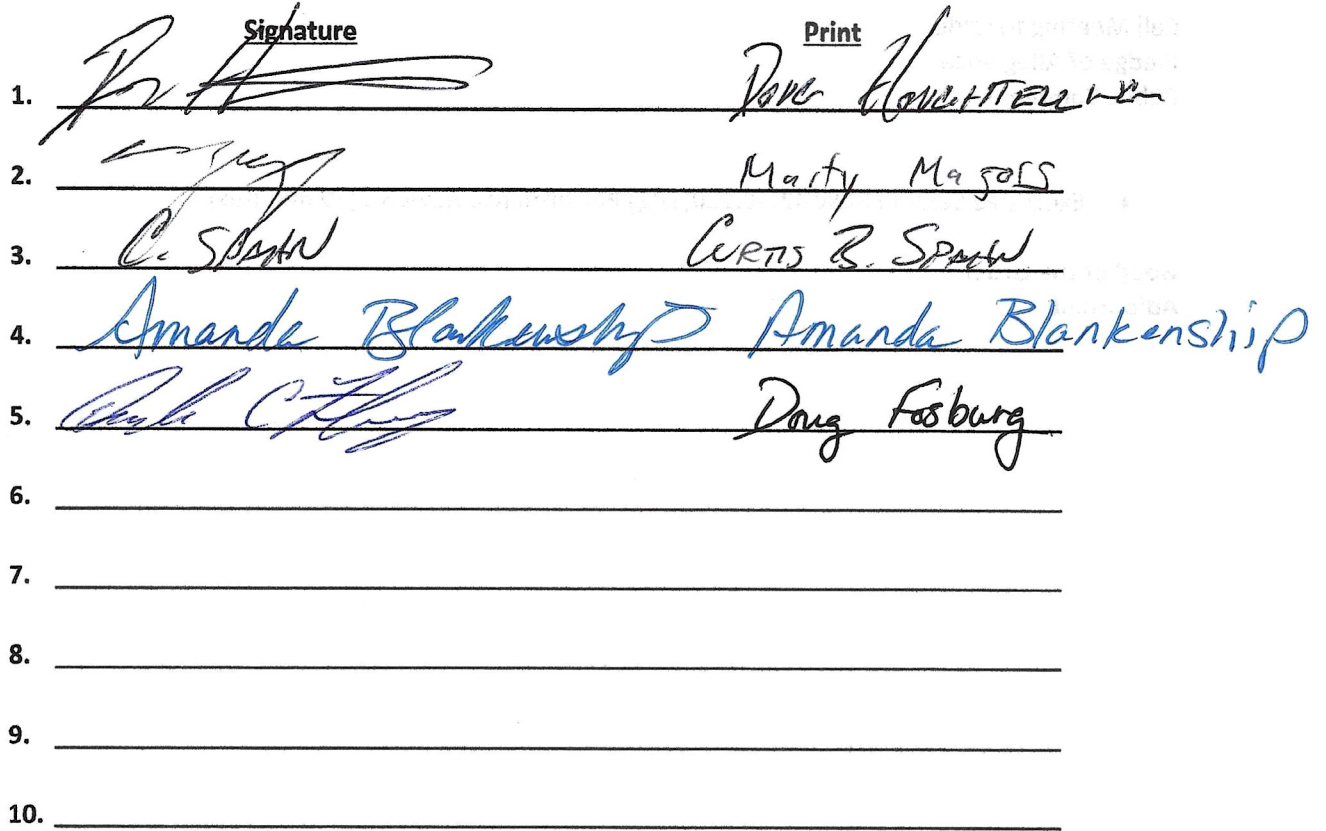 Signature Print
1. Doug
2. Marty Magors
3. C. SPAHN CURTIS B. SPAHN
4. Amanda Blankenship Amanda Blankenship
5. Doug Fosburg
6.
7.
8.
9.
10.